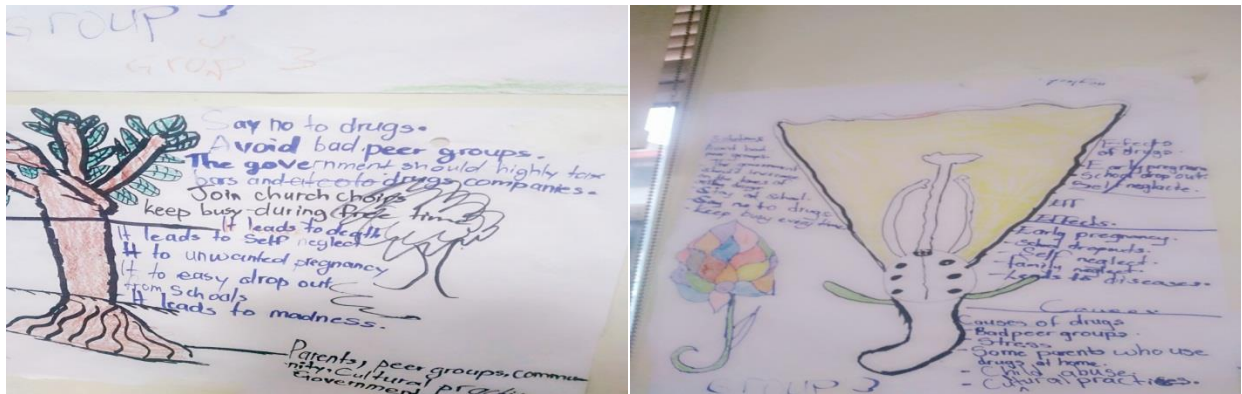 GROUP 3
Group 3
Say no to drugs.
Avoid bad peer groups.
The government should highly tax
bars and drugs companies.
Join church choirs
keep busy during free time
It leads to death
It leads to self neglect
It to unwanted pregnancy
It to easy drop out
from Schools
It leads to madness.
Parents, peer groups, commu-
nity, Cultural
Government
Avoid bad
peer groups.
The government
should
the taxes of
at school.
Say no to drugs
Keep busy every time
GROUP 3
Effects
of drugs.
Early
School drop out
Self neglecte
Eff
Effects.
- Early pregnancy.
- School dropouts.
- Self neglect.
- family neglect.
- Leads to diseases.
Causes
Causes of drugs
- Bad peer groups.
- Stress
- Some parents who use
drugs at home.
- Child abuse
- Cultural practices.